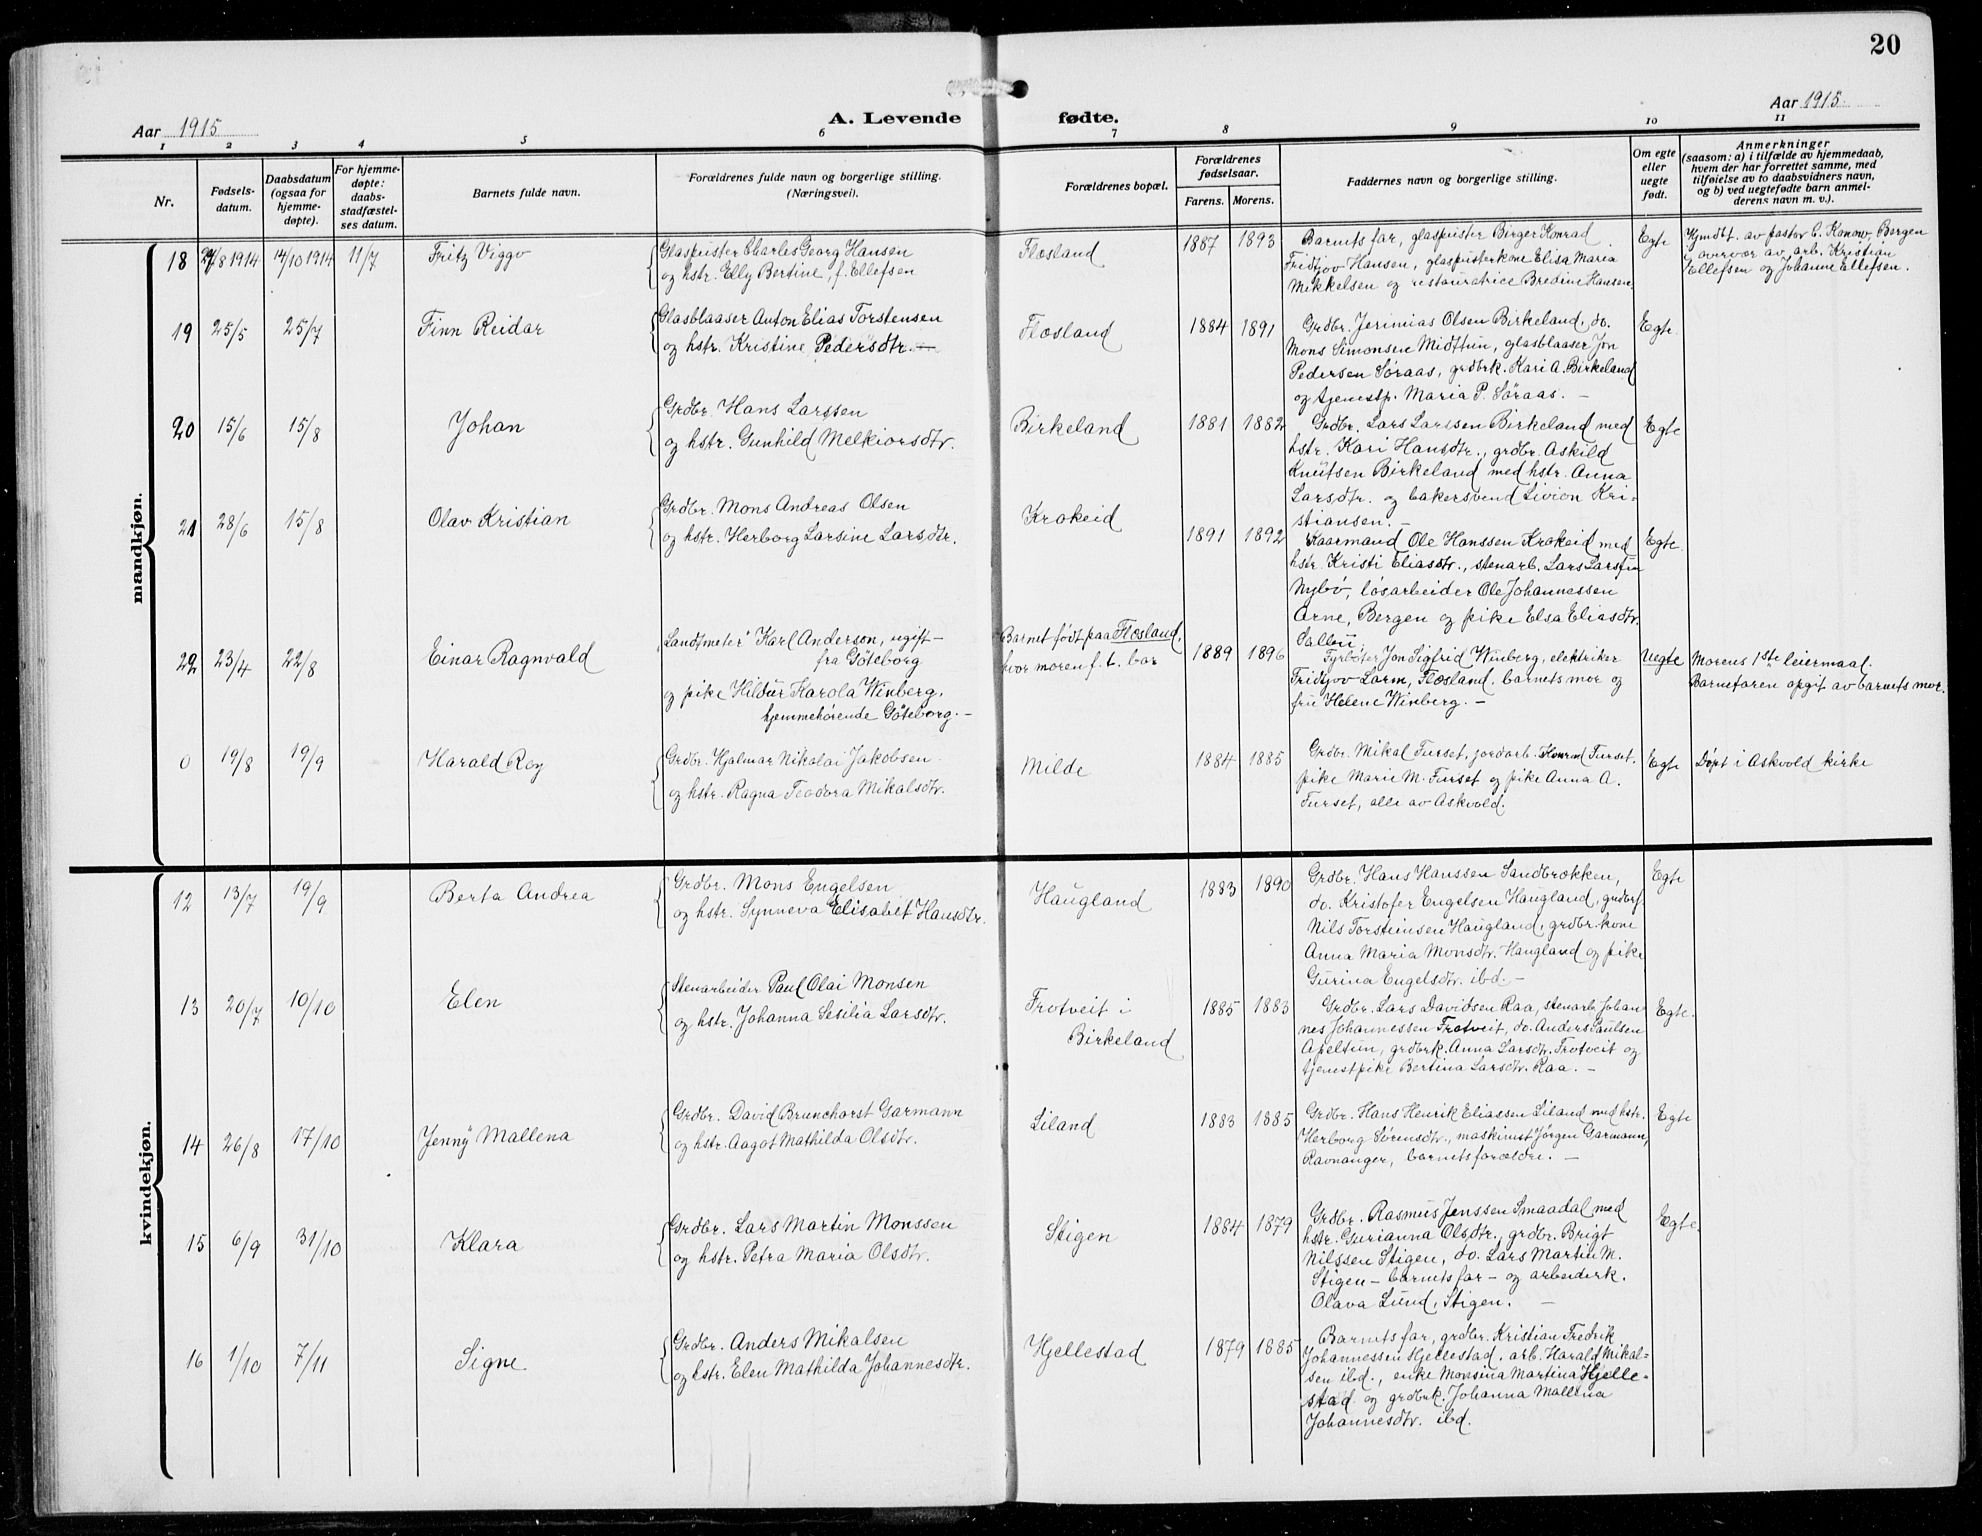 20
Aar 1915
A. Levende
fødte.
Aar 1915.
1 2 3 4 5 6 7 8 9 10 11
Nr.
Fødsels-
datum.
Daabsdatum
(ogsaa for
hjemme-
døpte).
For hjemme-
døpte:
daabs-
stadfæstel-
ses datum.
Barnets fulde navn.
Forældrenes fulde navn og borgerlige stilling.
(Næringsvei).
Forældrenes bopæl.
Forældrenes
fødselsaar.
Farens. Morens.
Faddernes navn og borgerlige stilling.
Om egte
eller
uegte
født.
Anmerkninger
(saasom: a) i tilfælde av hjemmedaab,
hvem der har forrettet samme, med
tilføielse av to daabsvidners navn,
og b) ved uegtefødte barn anmel-
derens navn m. v.).
mandkjøn.
18 29/8 1914 14/10 1914 11/7 Fritz Viggo
Glaspuster Charles Georg Hansen
og hstr. Elly Bertine f. Ellefsen
Flæsland
1887 1893
Barnets far, glaspuster Birger Konrad
Fridtjov Hansen, glaspusterkone Elisa Maria
Mikkelsen og restauratrice Bredine Hansen.
Egte
Hjmdbt. av pastor C. Konow, Bergen
i overvær av arb. Kristian
Ellefsen og Johanne Ellefsen.
19 25/5 25/7 Finn Reidar
Glasblaaser Anton Elias Torstensen
og hstr. Kristine Pedersdtr. —
Flæsland
1884 1891
Grdbr. Jerimias Olsen Birkeland, do.
Mons Simonsen Midttun, glasblaaser Jon
Pedersen Søraas, grdbrk. Kari A. Birkeland
og tjenestp. Maria P. Søraas. —
Egte.
20 15/6 15/8 Johan
Grdbr. Hans Larssen
og hstr. Gunhild Melkiorsdtr.
Birkeland
1881 1882
Grdbr. Lars Larssen Birkeland med
hstr. Kari Hansdtr., grdbr. Askild
Knutsen Birkeland med hstr. Anna
Larsdtr. og bakersvend Livion Kri-
stiansen. —
Egte
21 28/6 15/8 Olav Kristian
Grdbr. Mons Andreas Olsen
og hstr. Herborg Larsine Larsdtr.
Krokeid
1891 1892
Kaarmand Ole Hanssen Krokeid med
hstr. Kristi Eliasdtr., stenarb. Lars Larsen
Nybø, løsarbeider Ole Johannessen
Arne, Bergen og pike Elsa Eliasdtr.
Salbu.
Egte.
22 23/4 22/8 Einar Ragnvald
"Landtmeter" Karl Anderson, ugift —
fra Göteborg
og pike Hildur Karola Winberg,
hjemmehørende Göteborg. —
Barnet født paa Flæsland,
hvor moren f. t. bor
1889 1896
Fyrbøter Jon Sigfrid Winberg, elektriker
Fridtjov Larm, Flæsland, barnets mor og
fru Helene Winberg. —
Uegte
Morens 1ste leiermaal.
Barnefaren opgit av barnets mor.
0 19/8 19/9 Harald Roy
Grdbr. Hjalmar Nikolai Jakobsen
og hstr. Ragna Teodora Mikalsdtr.
Milde
1884 1885
Grdbr. Mikal Furset, jordarb. Konrad Furset,
pike Marie M. Furset og pike Anna A.
Furset, alle av Askvold.
Egte
Døpt i Askvold kirke
kvindekjøn.
12 13/7 19/9 Berta Andrea
Grdbr. Mons Engelsen
og hstr. Synneva Elisabet Hansdtr.
Haugland
1883 1890
Grdbr. Hans Hanssen Sandbrekken,
do. Kristofer Engelsen Haugland, grdbrf.
Nils Torsteinsen Haugland, grdbr.kone
Anna Maria Monsdtr. Haugland og pike
Gurina Engelsdtr. ibd. —
Egte
13 20/7 10/10 Elen
Stenarbeider Paul Olai Monsen
og hstr. Johanna Sesilia Larsdtr.
Frotveit i
Birkeland
1885 1883
Grdbr. Lars Davidsen Raa, stenarb. Johan-
nes Johannessen Frotveit, do. Anders Paulsen
Apeltun, grdbrk. Anna Larsdtr. Frotveit og
tjenestpike Bertina Larsdtr. Raa. —
Egte.
14 26/8 17/10 Jenny Mallena
Grdbr. David Brunchorst Garmann
og hstr. Aagot Mathilda Olsdtr.
Liland
1883 1885
Grdbr. Hans Henrik Eliassen Liland med hstr.
Herborg Sørensdtr., maskinist Jørgen Garmann,
Ravnanger, barnets forældre. —
Egte
15 6/9 31/10 Klara
Grdbr. Lars Martin Monssen
og hstr. Petra Maria Olsdtr.
Stigen
1884 1879
Grdbr. Rasmus Jenssen Smaadal med
hstr. Gurianna Olsdtr., grdbr. Brigt
Nilssen Stigen, do. Lars Martin M.
Stigen — barnets far — og arbeiderk.
Olava Lund, Stigen. —
Egte.
16 1/10 7/11 Signe
Grdbr. Anders Mikalsen
og hstr. Elen Mathilda Johannesdtr.
Hjellestad
1879 1885
Barnets far, grdbr. Kristian Fredrik
Johannessen Hjellestad, arb. Harald Mikal-
sen ibd., enke Monsina Martina Hjelle-
stad og grdbrk. Johanna Mallena
Johannesdtr. ibd.